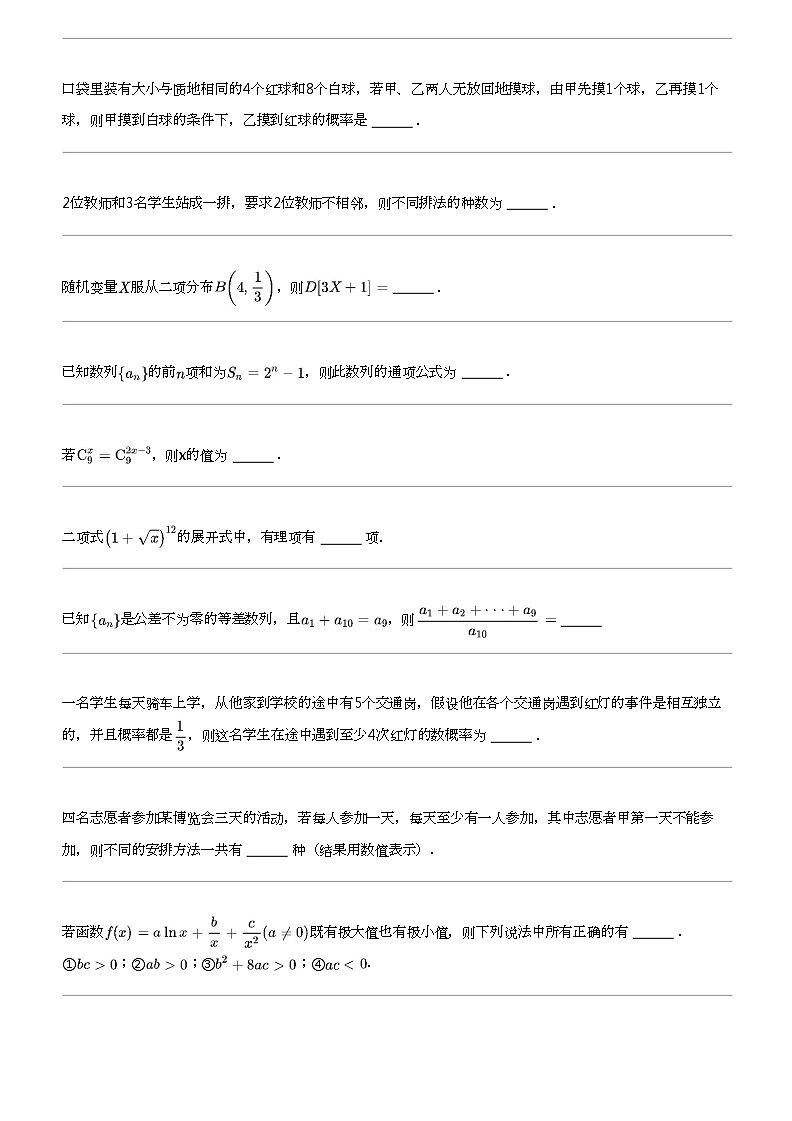 口袋里装有大小与质地相同的4个红球和8个白球，若甲、乙两人无放回地摸球，由甲先摸1个球，乙再摸1个
球，则甲摸到白球的条件下，乙摸到红球的概率是 ______ .
2位教师和3名学生站成一排，要求2位教师不相邻，则不同排法的种数为 ______ .
随机变量X服从二项分布B(4, 1/3)，则D[3X + 1] = ______ .
已知数列{aₙ}的前n项和为Sₙ = 2ⁿ − 1，则此数列的通项公式为 ______ .
若C₉^x = C₉^(2x−3)，则x的值为 ______ .
二项式(1 + √x)^12的展开式中，有理项有 ______ 项.
已知{aₙ}是公差不为零的等差数列，且a₁ + a₁₀ = a₉，则 (a₁ + a₂ + ··· + a₉)/a₁₀ = ______
一名学生每天骑车上学，从他家到学校的途中有5个交通岗，假设他在各个交通岗遇到红灯的事件是相互独立
的，并且概率都是1/3，则这名学生在途中遇到至少4次红灯的数概率为 ______ .
四名志愿者参加某博览会三天的活动，若每人参加一天，每天至少有一人参加，其中志愿者甲第一天不能参
加，则不同的安排方法一共有 ______ 种（结果用数值表示）.
若函数f(x) = a ln x + b/x + c/x² (a ≠ 0)既有极大值也有极小值，则下列说法中所有正确的有 ______ .
①bc > 0；②ab > 0；③b² + 8ac > 0；④ac < 0.